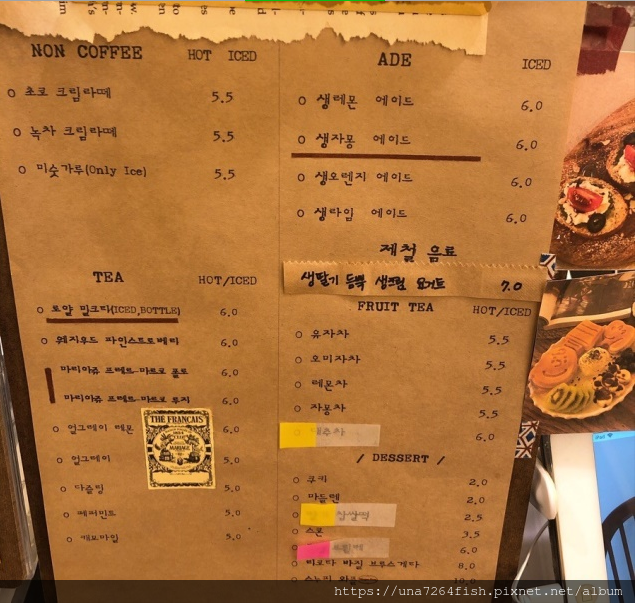 NON COFFEE HOT ICED
초코 크림라떼 5.5
녹차 크림라떼 5.5
미숫가루(Only Ice) 5.5
TEA HOT/ICED
로얄 밀크티(ICED,BOTTLE) 6.0
웨지우드 파인스트로베리 6.0
마리아쥬 프레르-마르코 폴로 6.0
마리아쥬 프레르-마르코 루지 6.0
얼그레이 레몬 6.0
얼그레이 5.0
다즐링 5.0
페퍼민트 5.0
캐모마일 5.0
THE FRANCAIS
MARIAGE
ADE ICED
생레몬 에이드 6.0
생자몽 에이드 6.0
생오렌지 에이드 6.0
생라임 에이드 6.0
제철 음료
생딸기 듬뿍 생크림 요거트 7.0
FRUIT TEA HOT/ICED
유자차 5.5
오미자차 5.5
레몬차 5.5
자몽차 5.5
대추차 6.0
/ DESSERT /
쿠키 2.0
마들렌 2.0
찹쌀떡 2.5
스콘 3.5
6.0
리코타 바질 브루스게타 8.0
10.0
https://una7264fish.pixnet.net/album